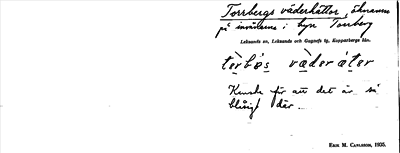 Torrbergs väderhättor, öknamn
på invånarna i byn Torrberg
Leksands sn, Leksands och Gagnefs tg, Kopparbergs län.
tèrbǻs vǽderáter
Kanske för att det är så
blåsigt där.
ERIK M. CARLSSON, 1935.